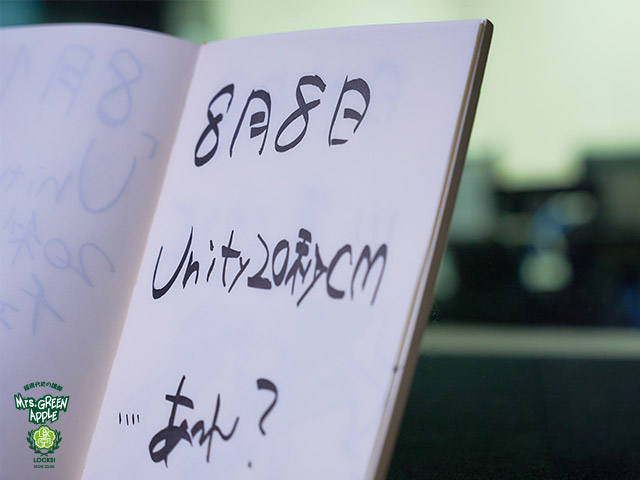 8月8日
Unity20秒CM
....あれん?
Mrs. GREEN
APPLE
LOCKS!